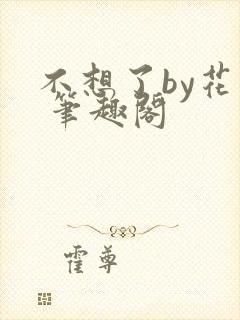 不想了by花
笔趣阁
霍尊